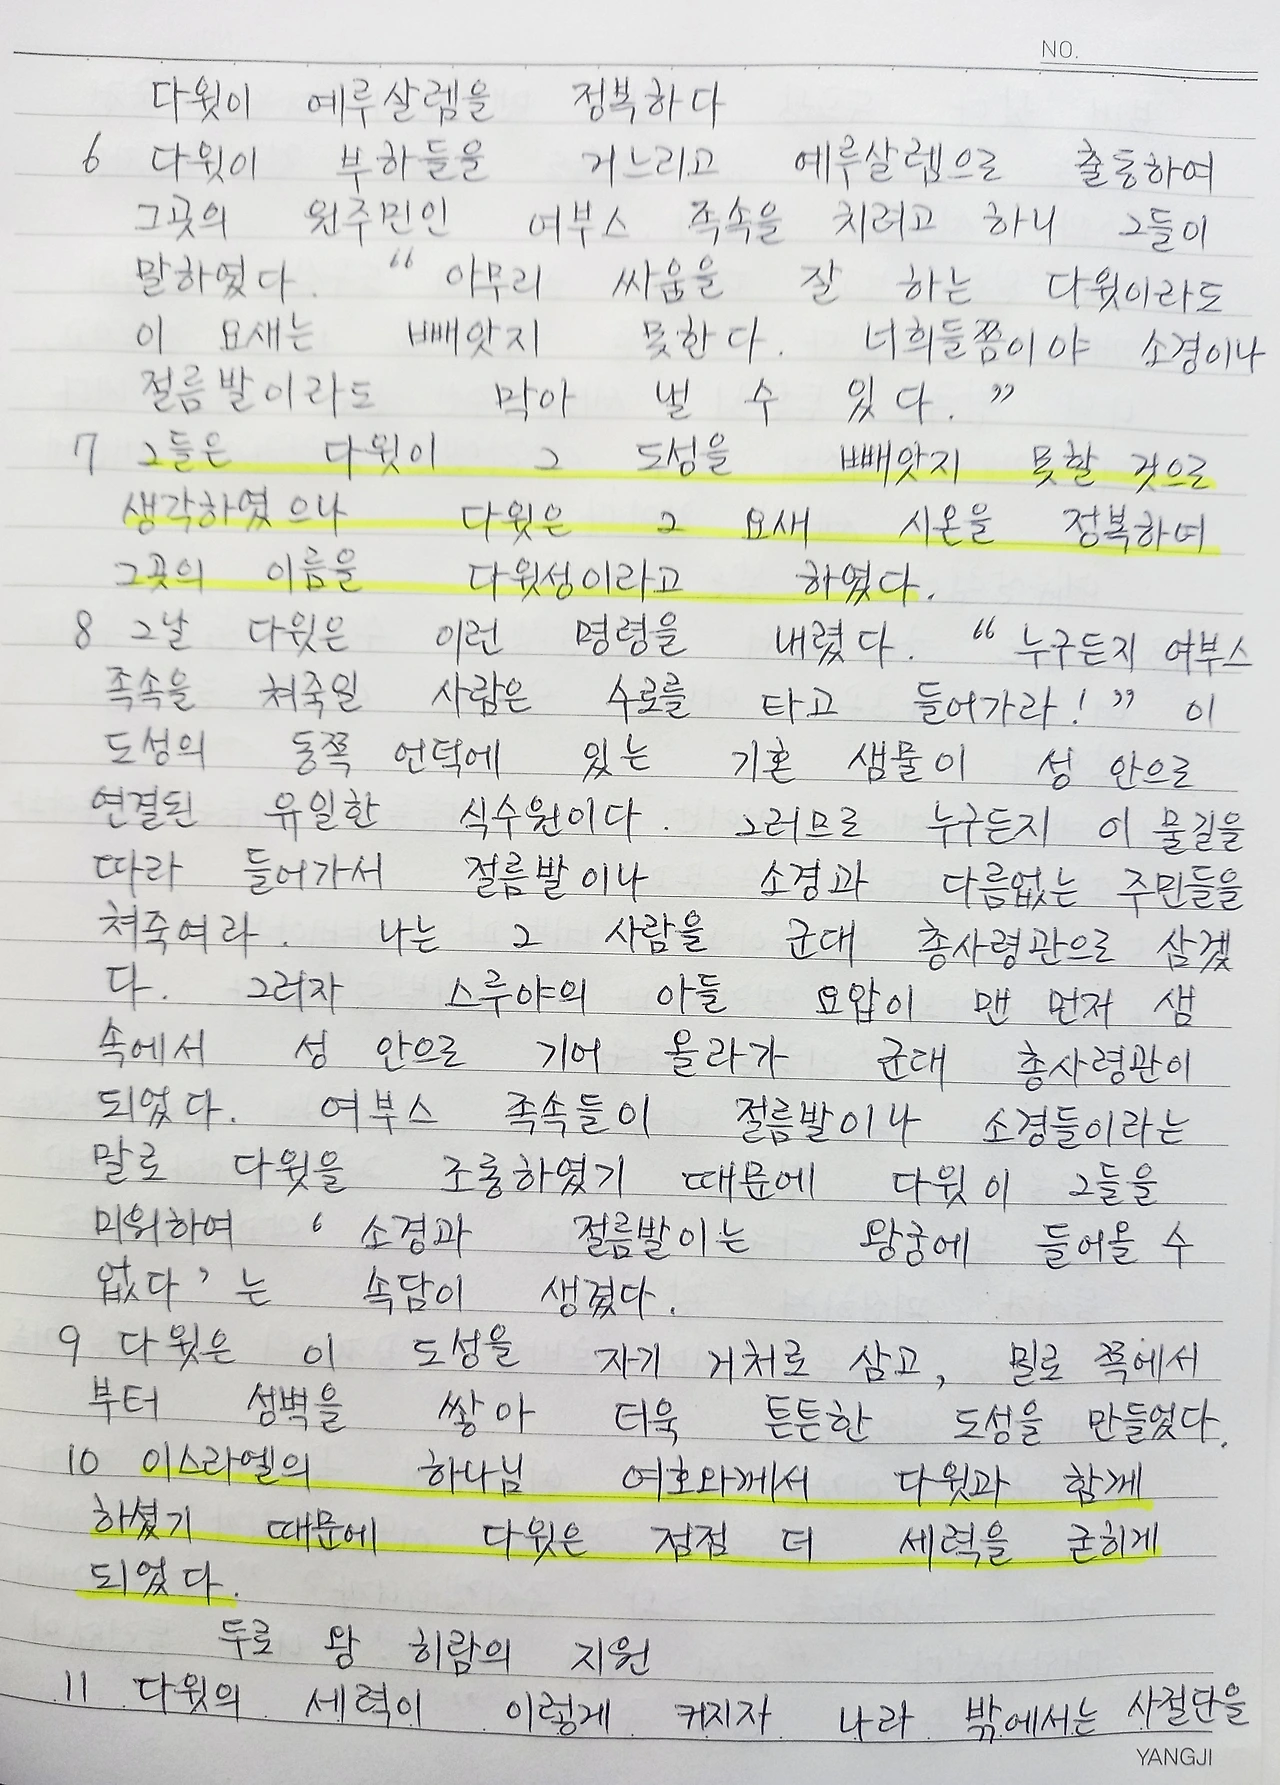 NO.
다윗이 예루살렘을 정복하다
6 다윗이 부하들을 거느리고 예루살렘으로 출동하여
그곳의 원주민인 여부스 족속을 치려고 하니 그들이
말하였다. “ 아무리 싸움을 잘 하는 다윗이라도
이 요새는 빼앗지 못한다. 너희들쯤이야 소경이나
절름발이라도 막아 낼 수 있다. ”
7 그들은 다윗이 그 도성을 빼앗지 못할 것으로
생각하였으나 다윗은 그 요새 시온을 정복하여
그곳의 이름을 다윗성이라고 하였다.
8 그날 다윗은 이런 명령을 내렸다. “ 누구든지 여부스
족속을 쳐죽일 사람은 수로를 타고 들어가라! ” 이
도성의 동쪽 언덕에 있는 기혼 샘물이 성 안으로
연결된 유일한 식수원이다. 그러므로 누구든지 이 물길을
따라 들어가서 절름발이나 소경과 다름없는 주민들을
쳐죽여라. 나는 그 사람을 군대 총사령관으로 삼겠
다. 그러자 스루야의 아들 요압이 맨 먼저 샘
속에서 성 안으로 기어 올라가 군대 총사령관이
되었다. 여부스 족속들이 절름발이나 소경들이라는
말로 다윗을 조롱하였기 때문에 다윗이 그들을
미워하여 ‘ 소경과 절름발이는 왕궁에 들어올 수
없다 ’ 는 속담이 생겼다.
9 다윗은 이 도성을 자기 거처로 삼고, 밀로 쪽에서
부터 성벽을 쌓아 더욱 튼튼한 도성을 만들었다.
10 이스라엘의 하나님 여호와께서 다윗과 함께
하셨기 때문에 다윗은 점점 더 세력을 굳히게
되었다.
두로 왕 히람의 지원
11 다윗의 세력이 이렇게 커지자 나라 밖에서는 사절단을
YANGJI